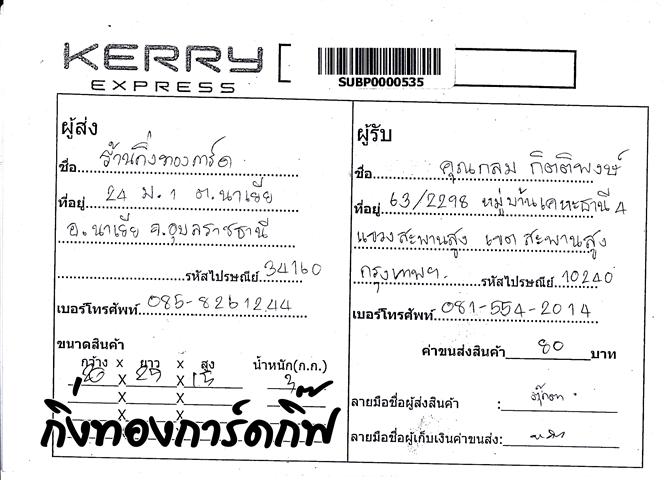 KERRY
EXPRESS
SUBP0000535
ผู้ส่ง
ชื่อ ร้านกิ่งทองการ์ด
ที่อยู่ 24 ม.1 ต.นาเยีย
อ.นาเยีย จ.อุบลราชธานี
รหัสไปรษณีย์ 34160
เบอร์โทรศัพท์ 085-8261244
ขนาดสินค้า
กว้าง x ยาว x สูง น้ำหนัก(ก.ก.)
20 x 25 x 15 3
x x
x x
กิ่งทองการ์ดกิ๊ฟ
ผู้รับ
ชื่อ คุณกลม กิตติพงษ์
ที่อยู่ 63/2298 หมู่บ้านเคหะธานี 4
แขวงสะพานสูง เขต สะพานสูง
กรุงเทพฯ. รหัสไปรษณีย์ 10240
เบอร์โทรศัพท์ 081-554-2014
ค่าขนส่งสินค้า 80 บาท
ลายมือชื่อผู้ส่งสินค้า :
ลายมือชื่อผู้เก็บเงินค่าขนส่ง: